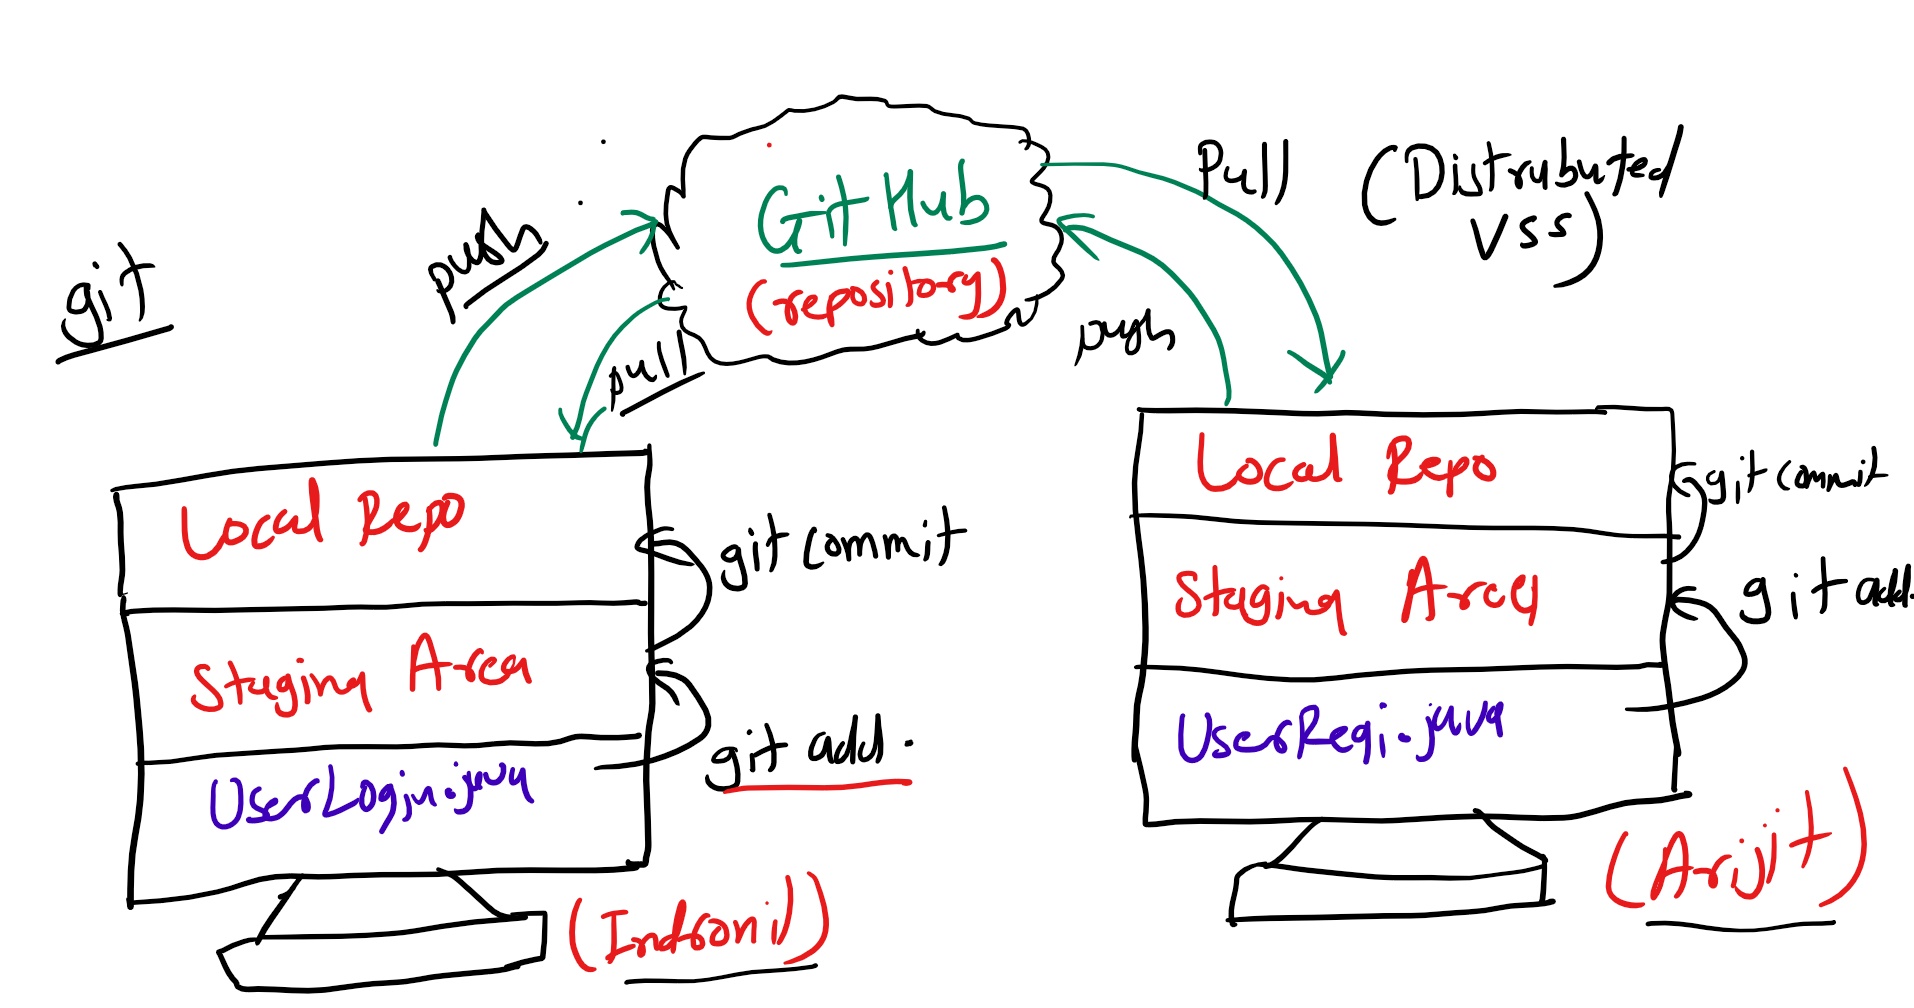 git
push
GitHub
(repository)
pull
Pull
push
(Distrubuted
VSS)
Local Repo
Staging Area
UserLogin.java
git commit
git add .
(Indronil)
Local Repo
Staging Area
UserRegi.java
git commit
git add.
(Arijit)